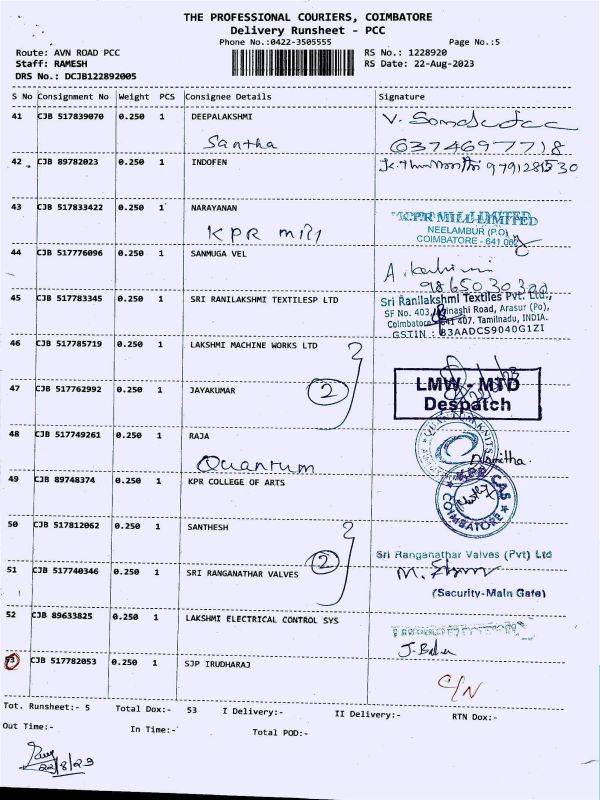 THE PROFESSIONAL COURIERS, COIMBATORE
Delivery Runsheet - PCC
Phone No.:0422-3505555 Page No.:5
Route: AVN ROAD PCC RS No.: 1228920
Staff: RAMESH RS Date: 22-Aug-2023
DRS No.: DCJB122892005
S No Consignment No Weight PCS Consignee Details Signature
41 CJB 517839070 0.250 1 DEEPALAKSHMI
Santha 6374697718
42 CJB 89782023 0.250 1 INDOFEN 9791281530
43 CJB 517833422 0.250 1 NARAYANAN KPR MILL LIMITED
KPR mill NEELAMBUR (P.O)
COIMBATORE - 641 062
44 CJB 517776096 0.250 1 SANMUGA VEL
A. 9865030300
45 CJB 517783345 0.250 1 SRI RANILAKSHMI TEXTILESP LTD Sri Ranilakshmi Textiles Pvt. Ltd.,
SF No. 403, Avinashi Road, Arasur (Po),
Coimbatore 641 407. Tamilnadu, INDIA.
GSTIN : 33AADCS9040G1ZI
46 CJB 517785719 0.250 1 LAKSHMI MACHINE WORKS LTD
47 CJB 517762992 0.250 1 JAYAKUMAR 2 LMW - MTD
Despatch
48 CJB 517749261 0.250 1 RAJA
Quantum
49 CJB 89748374 0.250 1 KPR COLLEGE OF ARTS KPR CAS
COIMBATORE
50 CJB 517812062 0.250 1 SANTHESH
2 Sri Ranganathar Valves (Pvt) Ltd
51 CJB 517740346 0.250 1 SRI RANGANATHAR VALVES
(Security-Main Gate)
52 CJB 89633825 0.250 1 LAKSHMI ELECTRICAL CONTROL SYS
53 CJB 517782053 0.250 1 SJP IRUDHARAJ
C/N
Tot. Runsheet:- 5 Total Dox:- 53 I Delivery:- II Delivery:- RTN Dox:-
Out Time:- In Time:- Total POD:-
22/8/23